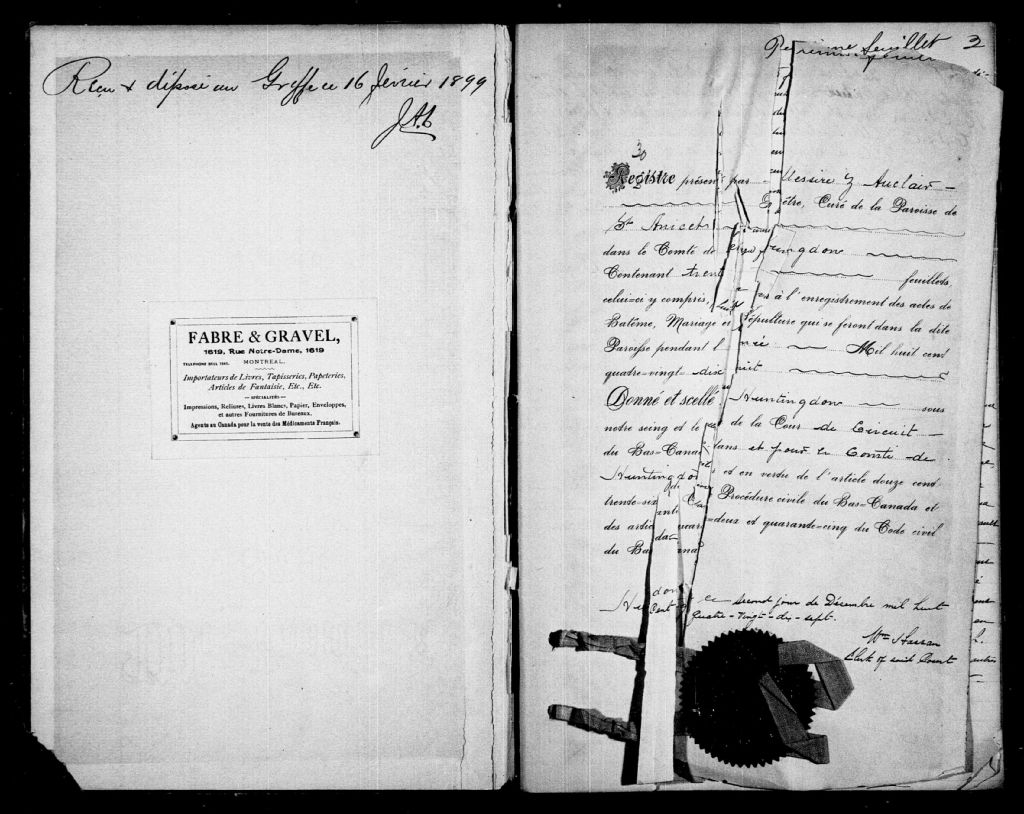 Reçu & déposé au Greffe ce 16 février 1899
FABRE & GRAVEL,
1619, Rue Notre-Dame, 1619
MONTREAL.
Importateurs de Livres, Tapisseries, Papeteries,
Articles de Fantaisie, Etc., Etc.
— SPÉCIALITÉS —
Impressions, Reliures, Livres Blancs, Papier, Enveloppes,
et autres Fournitures de Bureaux.
Agents au Canada pour la vente des Médicaments Français.
feuillet 2
30
Registre présen par Messire Auclair
Curé de la Paroisse de
St Anicet
dans le Comté de
Contenant trent feuillets,
celui-ci y compris, à l'enregistrement des actes de
Batême, Mariage et Sépulture qui se feront dans la dite
Paroisse pendant l Mil huit cent
quatre-vingt dix huit
Donné et scellé Huntingdon sous
notre seing et le de la Cour de Circuit
du Bas-Canada dans et pour le Comté de
Huntingdon et en vertu de l'article douze cent
trente-six Procédure civile du Bas-Canada et
des artic quarante-deux et quarante-cinq du Code civil
du Bas
ce second jour de Décembre mil huit
Quatre-vingt-dix-sept.
Clerk of said Court